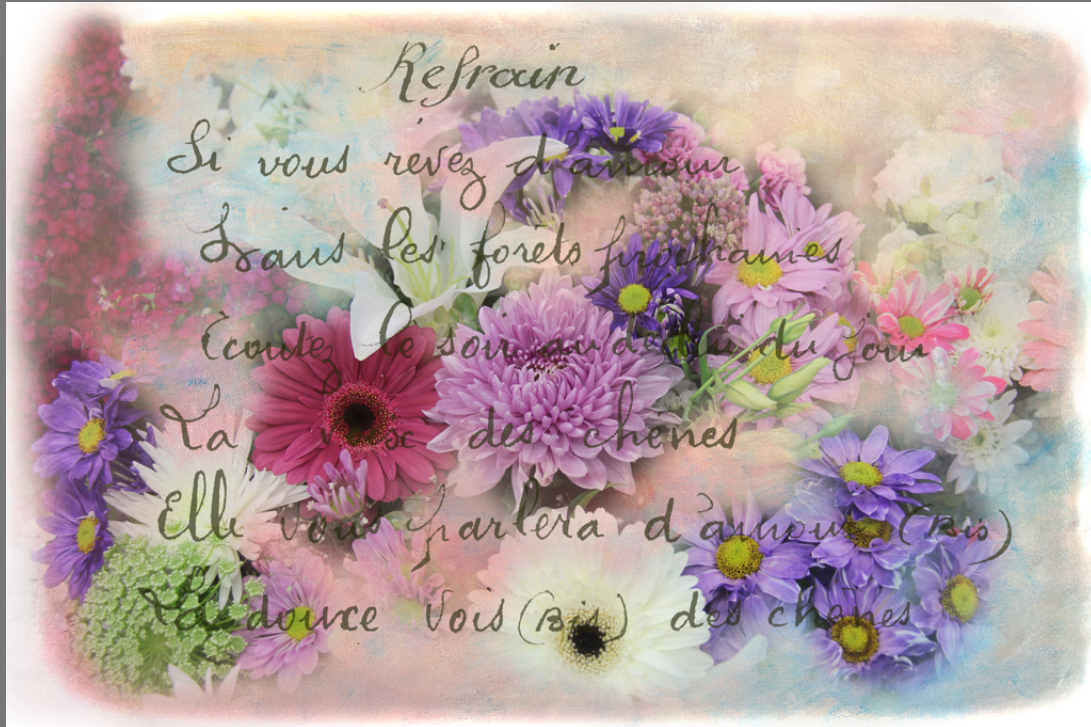 Refrain
Si vous rêvez d'amour
Dans les forêts prochaines
Écoutez le soir au déclin du jour
La voix des chênes
Elle vous parlera d'amour (Bis)
La douce Vois (Bis) des chênes